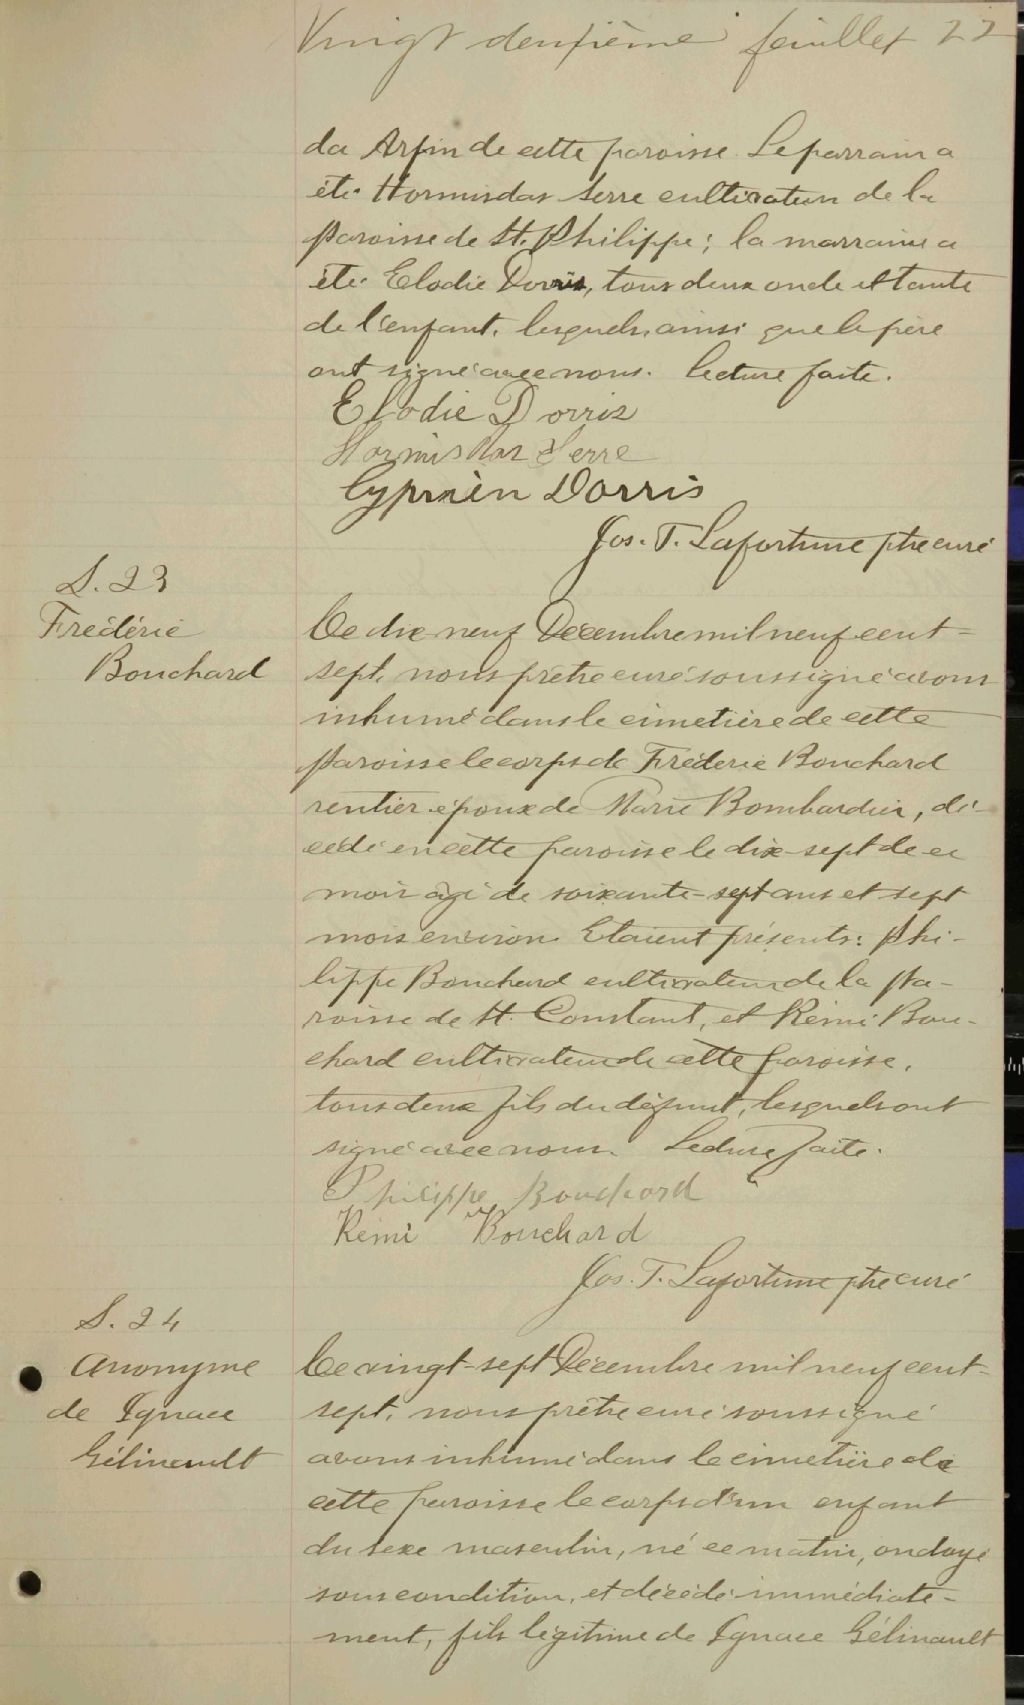 Vingt deuxième feuillet 22
da Arpin de cette paroisse. Le parrain a
été Hormisdas Serre cultivateur de la
paroisse de St. Philippe; la marraine a
été Elodie Dorris, tous deux oncle et tante
de l'enfant, lesquels ainsi que le père
ont signé avec nous. Lecture faite.
Elodie Dorris
Hormisdas Serre
Cyprien Dorris
Jos. T. Lafortune ptre curé
S. 23
Fréderic
Bouchard
Ce dix neuf Décembre mil neuf cent-
sept, nous prêtre curé soussigné avons
inhumé dans le cimetière de cette
paroisse le corps de Fréderic Bouchard
rentier époux de Marie Bombardier, dé-
cédé en cette paroisse le dix-sept de ce
mois âgé de soixante-sept ans et sept
mois environ. Etaient présents: Phi-
lippe Bouchard cultivateur de la pa-
roisse de St. Constant, et Rémi Bou-
chard cultivateur de cette paroisse,
tous deux fils du défunt, lesquels ont
signé avec nous. Lecture faite.
Philippe Bouchard
Remi Bouchard
Jos. T. Lafortune ptre curé
S. 24
Anonyme
de Ignace
Gélineault
Ce vingt-sept Décembre mil neuf cent-
sept, nous prêtre curé soussigné
avons inhumé dans le cimetière de
cette paroisse le corps d'un enfant
du sexe masculin, né ce matin, ondoyé
sous condition, et décédé immédiate-
ment, fils légitime de Ignace Gélinault